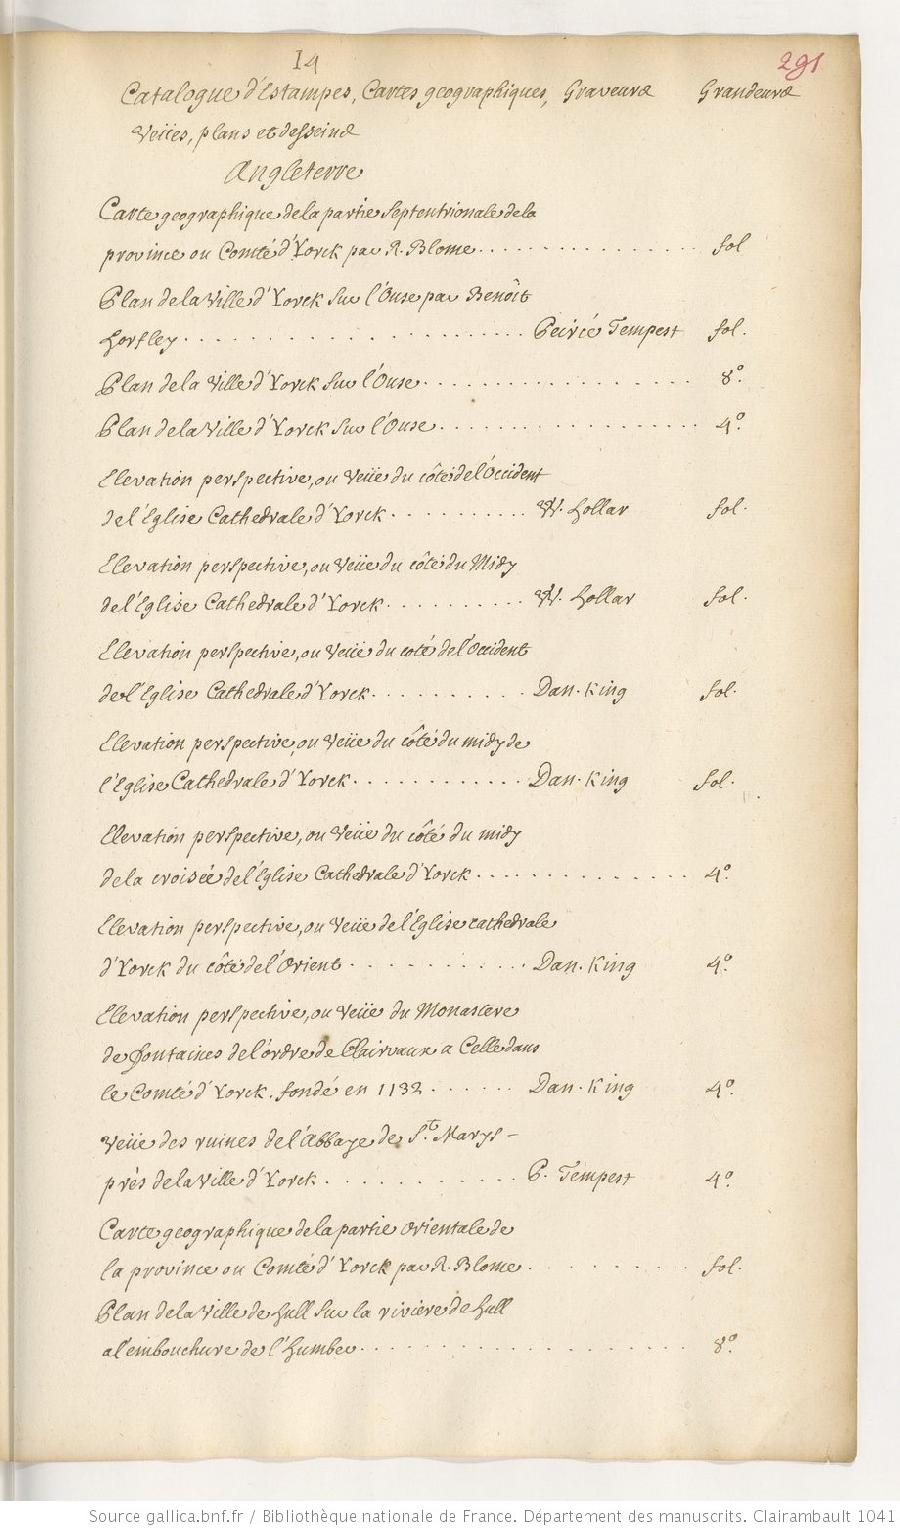 14
291
Catalogue d'Estampes, Cartes geographiques, Graveurs Grandeurs
Veües, plans et desseins
Angleterre
Carte geographique de la partie Septentrionale de la
province ou Comté d'Yorck par R. Blome fol
Plan de la Ville d'Yorck Sur l'Ouse par Benoît
Horsley Peirié Tempest fol.
Plan de la Ville d'Yorck Sur l'Ouse 8º.
Plan de la Ville d'Yorck Sur l'Ouse 4º.
Elevation perspective, ou Veüe du côté de l'Occident
de l'Eglise Cathedrale d'Yorck W. Hollar fol.
Elevation perspective, ou Veüe du côté du Midy
de l'Eglise Cathedrale d'Yorck W. Hollar fol.
Elevation perspective, ou Veüe du coté de l'Occident
de l'Eglise Cathedrale d'Yorck Dan. King fol.
Elevation perspective, ou Veüe du côté du midy de
l'Eglise Cathedrale d'Yorck Dan. King fol.
Elevation perspective, ou Veüe du côté du midy
de la croisée de l'Eglise Cathedrale d'Yorck 4º.
Elevation perspective, ou Veüe de l'Eglise cathedrale
d'Yorck du côté de l'Orient Dan. King 4º.
Elevation perspective, ou Veüe du Monastere
de fontaines de l'ordre de Clairvaux a Celle dans
le Comté d'Yorck. fondé en 1132 Dan. King 4º.
Veüe des ruines de l'Abbaye de St. Marys-
près de la Ville d'Yorck P. Tempest 4º.
Carte geographique de la partie orientale de
la province ou Comté d'Yorck par R. Blome fol.
Plan de la Ville de hull Sur la riviere de hull
a l'embouchure de l'humber 8º.
Source gallica.bnf.fr / Bibliothèque nationale de France. Département des manuscrits. Clairambault 1041